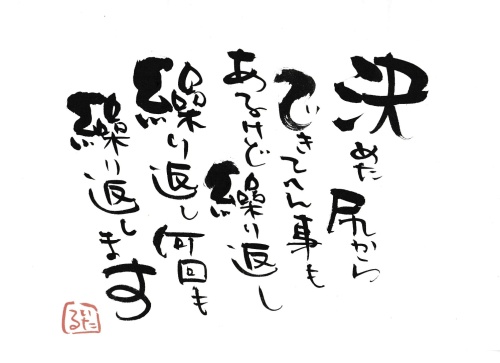 決めた尻から
できてへん事も
あるけど繰り返し
繰り返し何回も
繰り返します